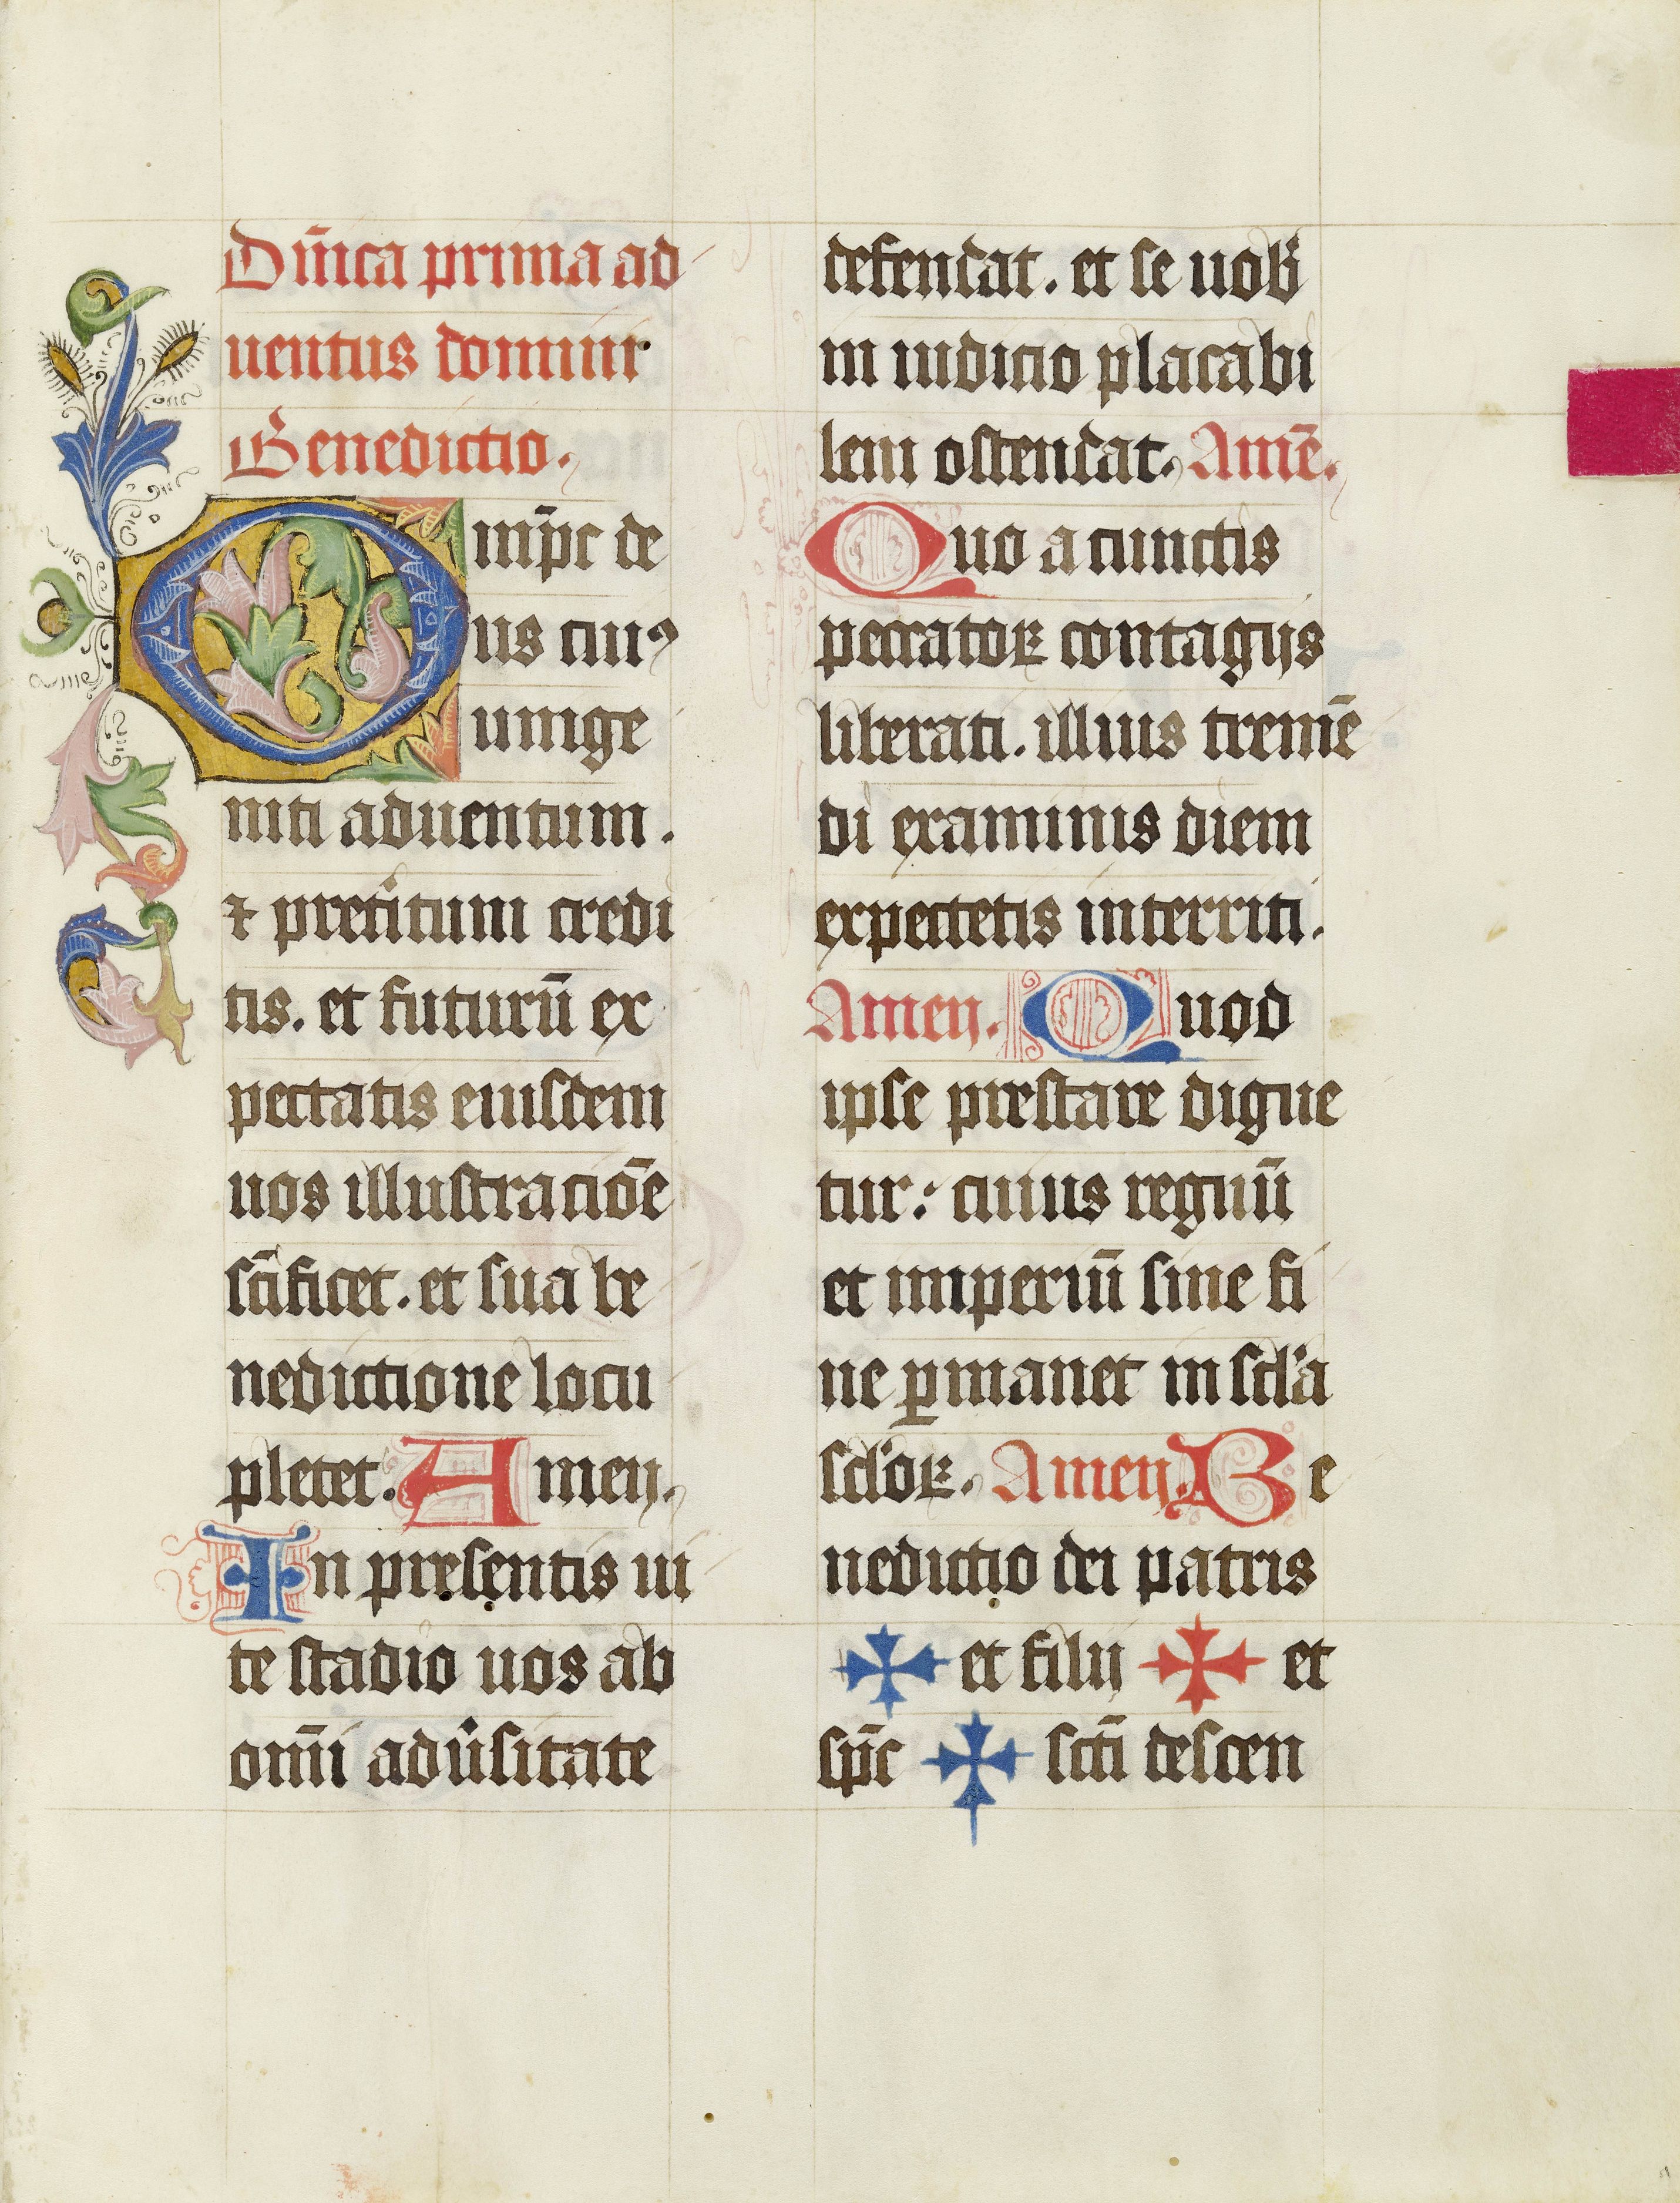 Dñica prima ad
uentus domini
Benedictio.
Omp̄c de
us cuiꝰ
unige
niti aduentum.
⁊ preteĩtum credi
tis. et futurū ex
pectatis eiusdem
uos illustraciōe
sc̄ificet. et sua be
nedictione locu
pletet. Amen.
In presentis ui
te stadio uos ab
om̄i adũsitate
defendat. et se uob̄
in iudicio placabi
lem ostendat. Amē.
Quo a cunctis
peccatoꝝ contagijs
liberati. illius tremē
di examinis diem
expectetis interriti.
Amen. Quod
ipse prestare digne
tur: cuius regnū
et imperiū sine fi
ne ꝑmanet in scl̓a
scl̓oꝝ. Amen. Be
nedictio dei patris
✠ et filij ✠ et
sp̄c ✠ sc̄ti descen